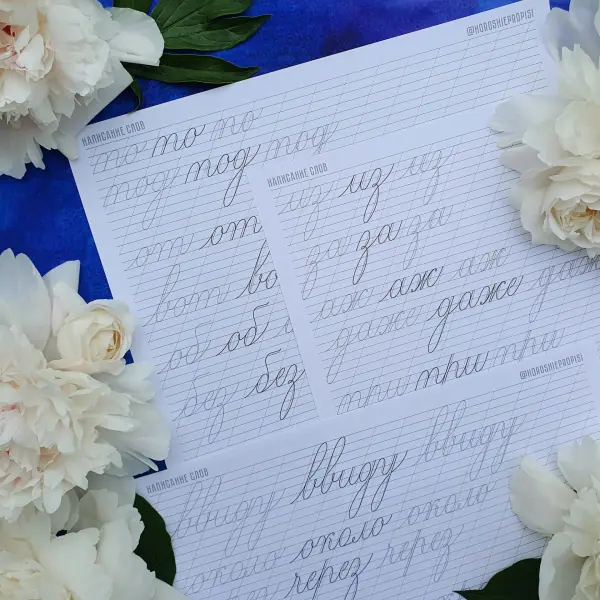 @HOROSHIEPROPISI
НАПИСАНИЕ СЛОВ
по по по
под под под
от от
вот во
об об
без без
НАПИСАНИЕ СЛОВ
из из из
за за за
аж аж аж
даже даже даже
при при при
@HOROSHIEPROPISI
НАПИСАНИЕ СЛОВ
ввиду ввиду ввиду
около около около
через через